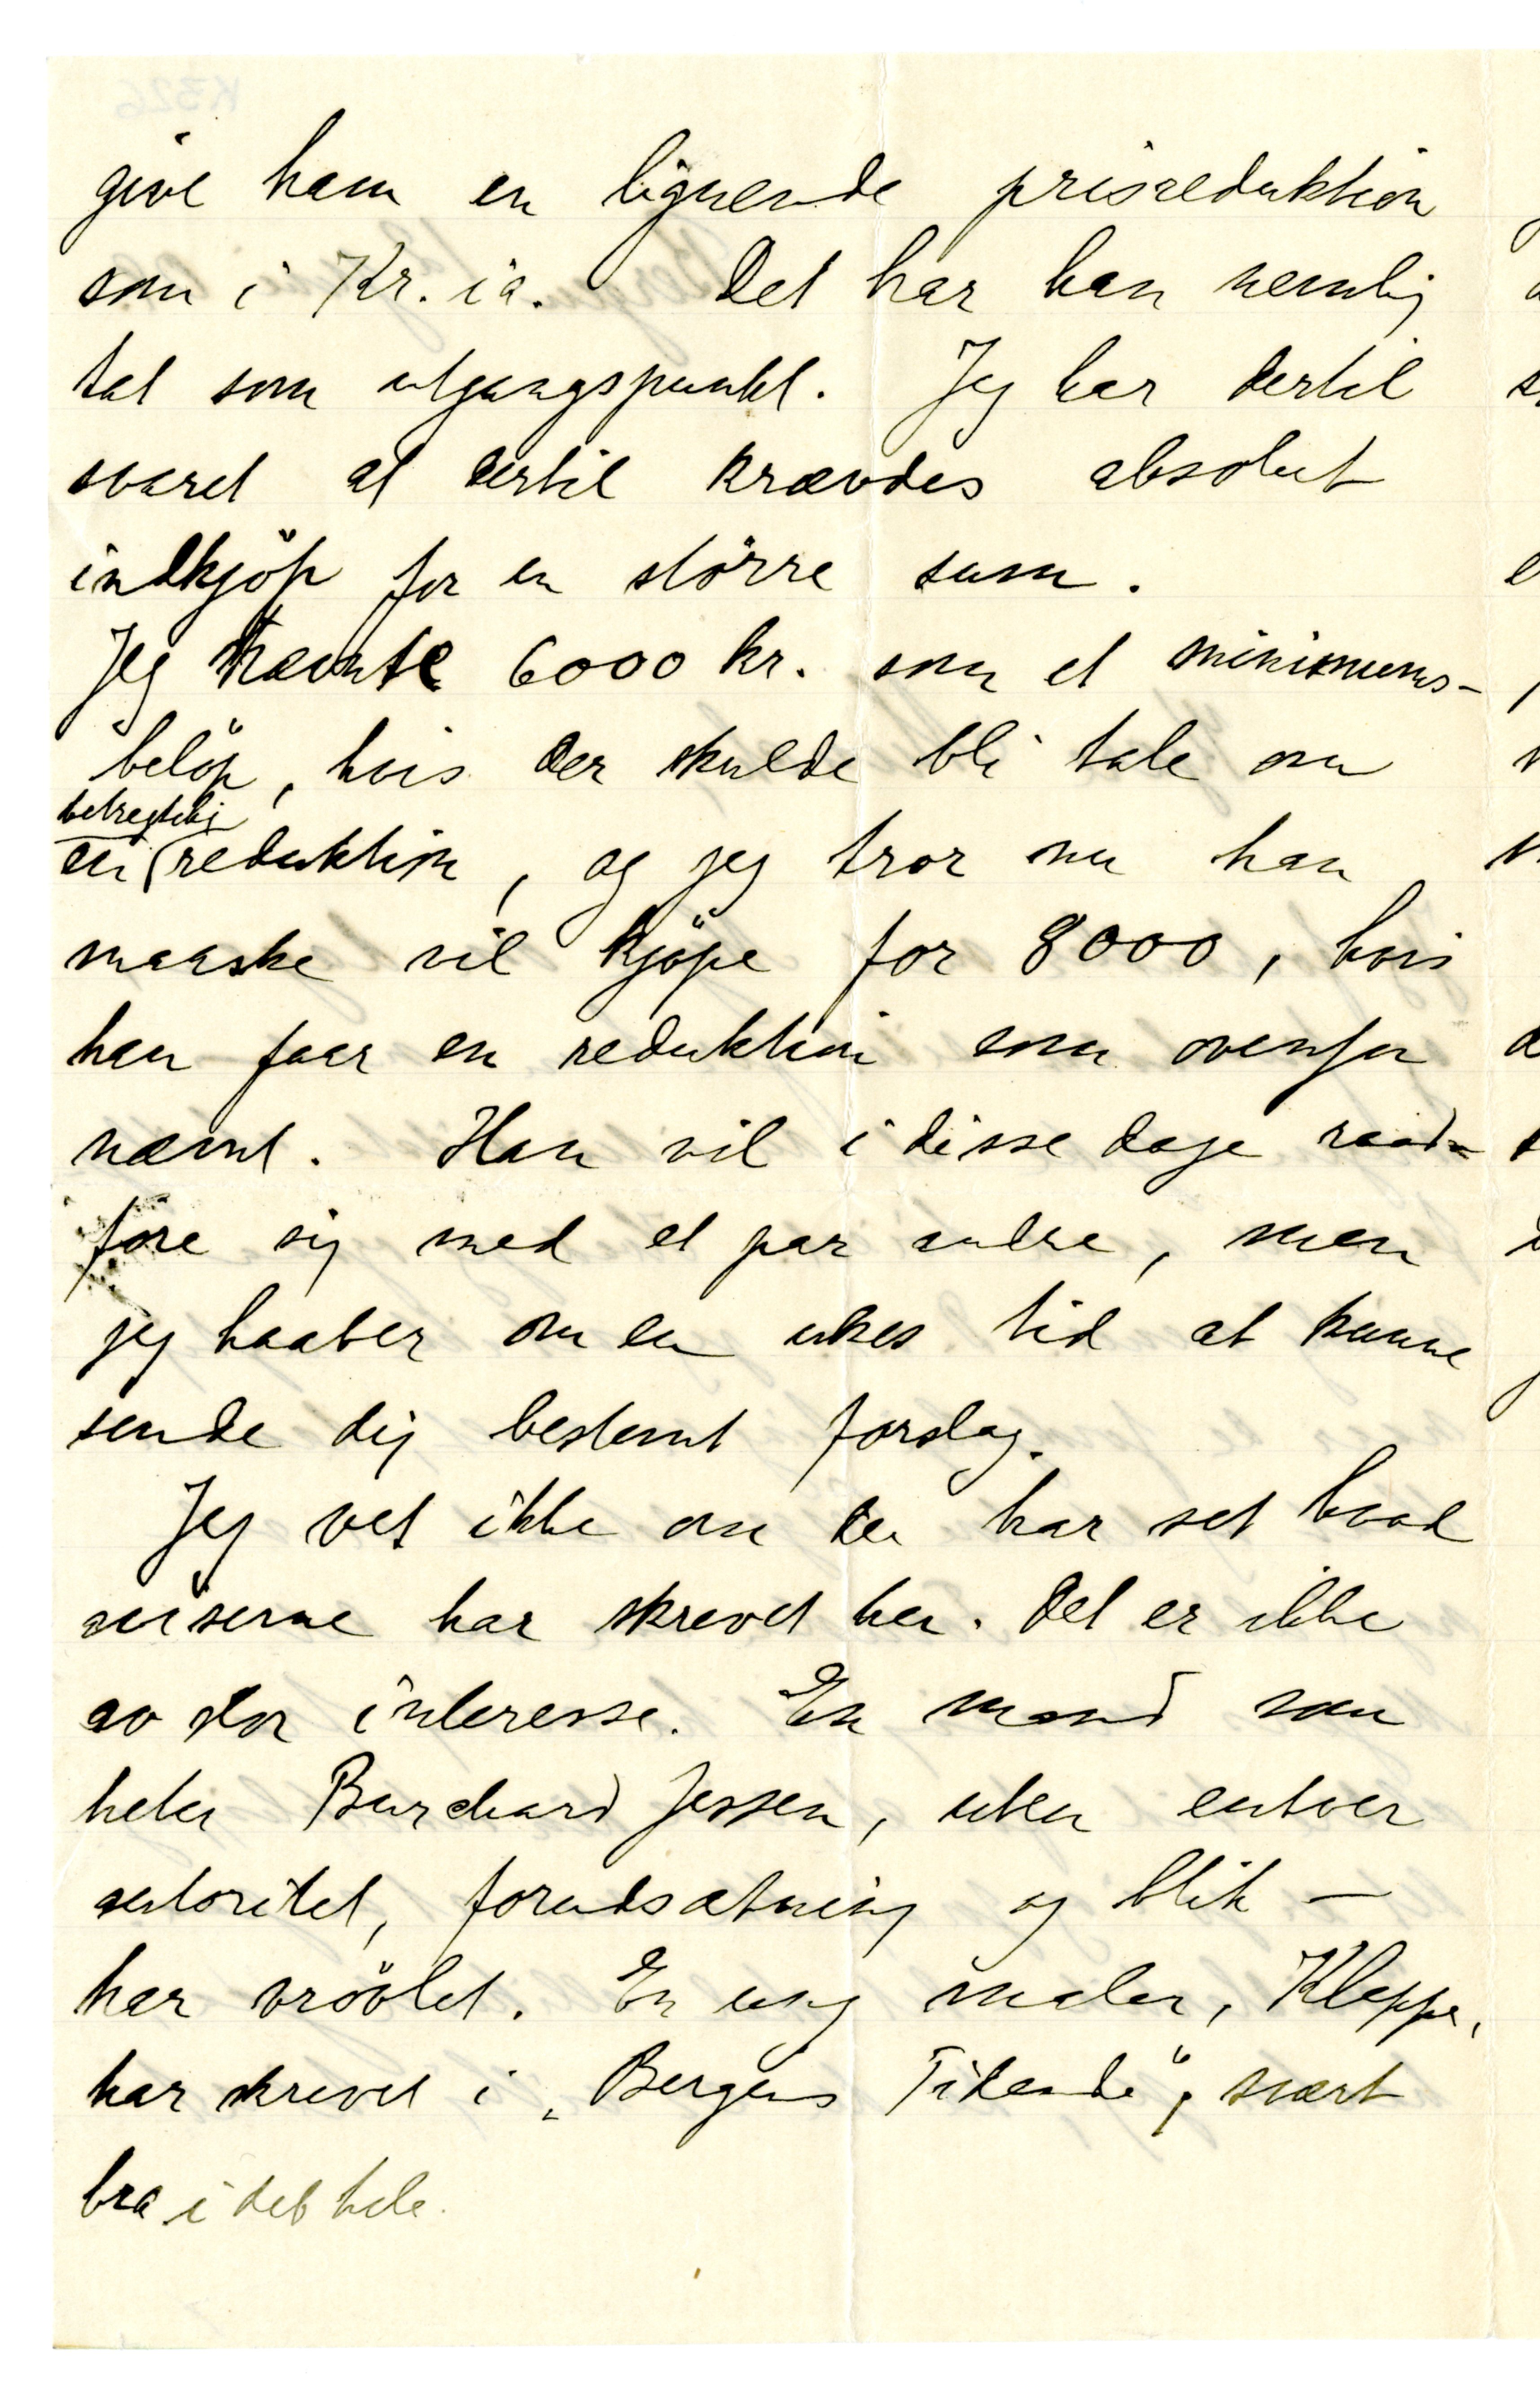 give ham en lignende prisreduktion
som i Kr.ia. Det har han nemlig
tat som utgangspunkt. Jeg har dertil
svaret at dertil krævdes absolut
indkjöp for en större sum.
Jeg nævnte 6000 kr. som et minimums-
belöp, hvis der skulde bli tale om
betragtelig
en reduktion, og jeg tror nu han
maaske vil kjöpe for 8000, hvis
han faar en reduktion som ovenfor
nævnt. Han vil i disse dage raad-
före sig med et par andre, men
jeg haaber om en ukes tid at kunne
sende dig bestemt forslag.
Jeg vet ikke om du har set hvad
aviserne har skrevet her. Det er ikke
av stor interesse. En mand som
heter Burchard Jessen, uten enhver
autoritet, forudsætning og blik —
har vrövlet. En ung maler, Kleppe,
har skrevet i „Bergens Tidende", svært
bra i det hele.